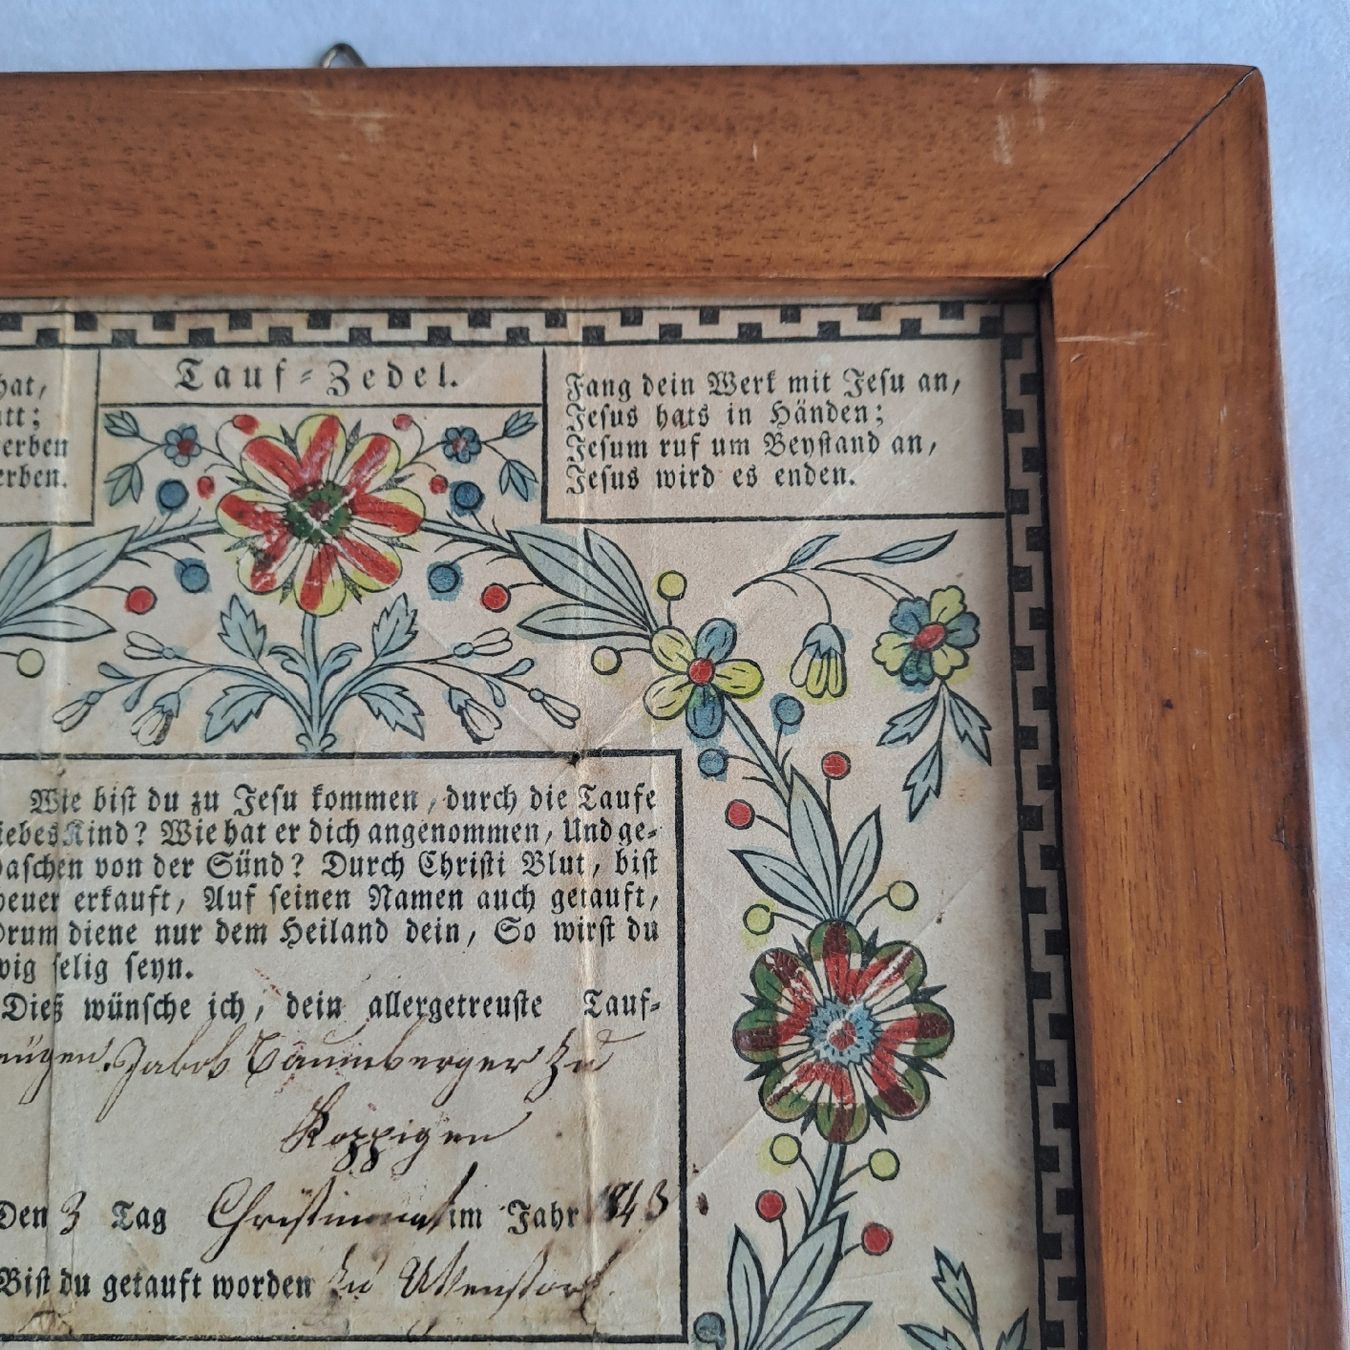 hat,
att;
erben
erben.
Tauf-Zedel.
Fang dein Werk mit Jesu an,
Jesus hats in Händen;
Jesum ruf um Beystand an,
Jesus wird es enden.
Wie bist du zu Jesu kommen, durch die Taufe
iebes Kind? Wie hat er dich angenommen, Und ge-
waschen von der Sünd? Durch Christi Blut, bist
heuer erkauft, Auf seinen Namen auch getauft,
Drum diene nur dem Heiland dein, So wirst du
wig selig seyn.
Dieß wünsche ich, dein allergetreuste Tauf-
zeügen. Jacob Baumberger zu
Koppigen
Den 3 Tag Christmonat im Jahr 1843
Bist du getauft worden zu Uttenstorf.